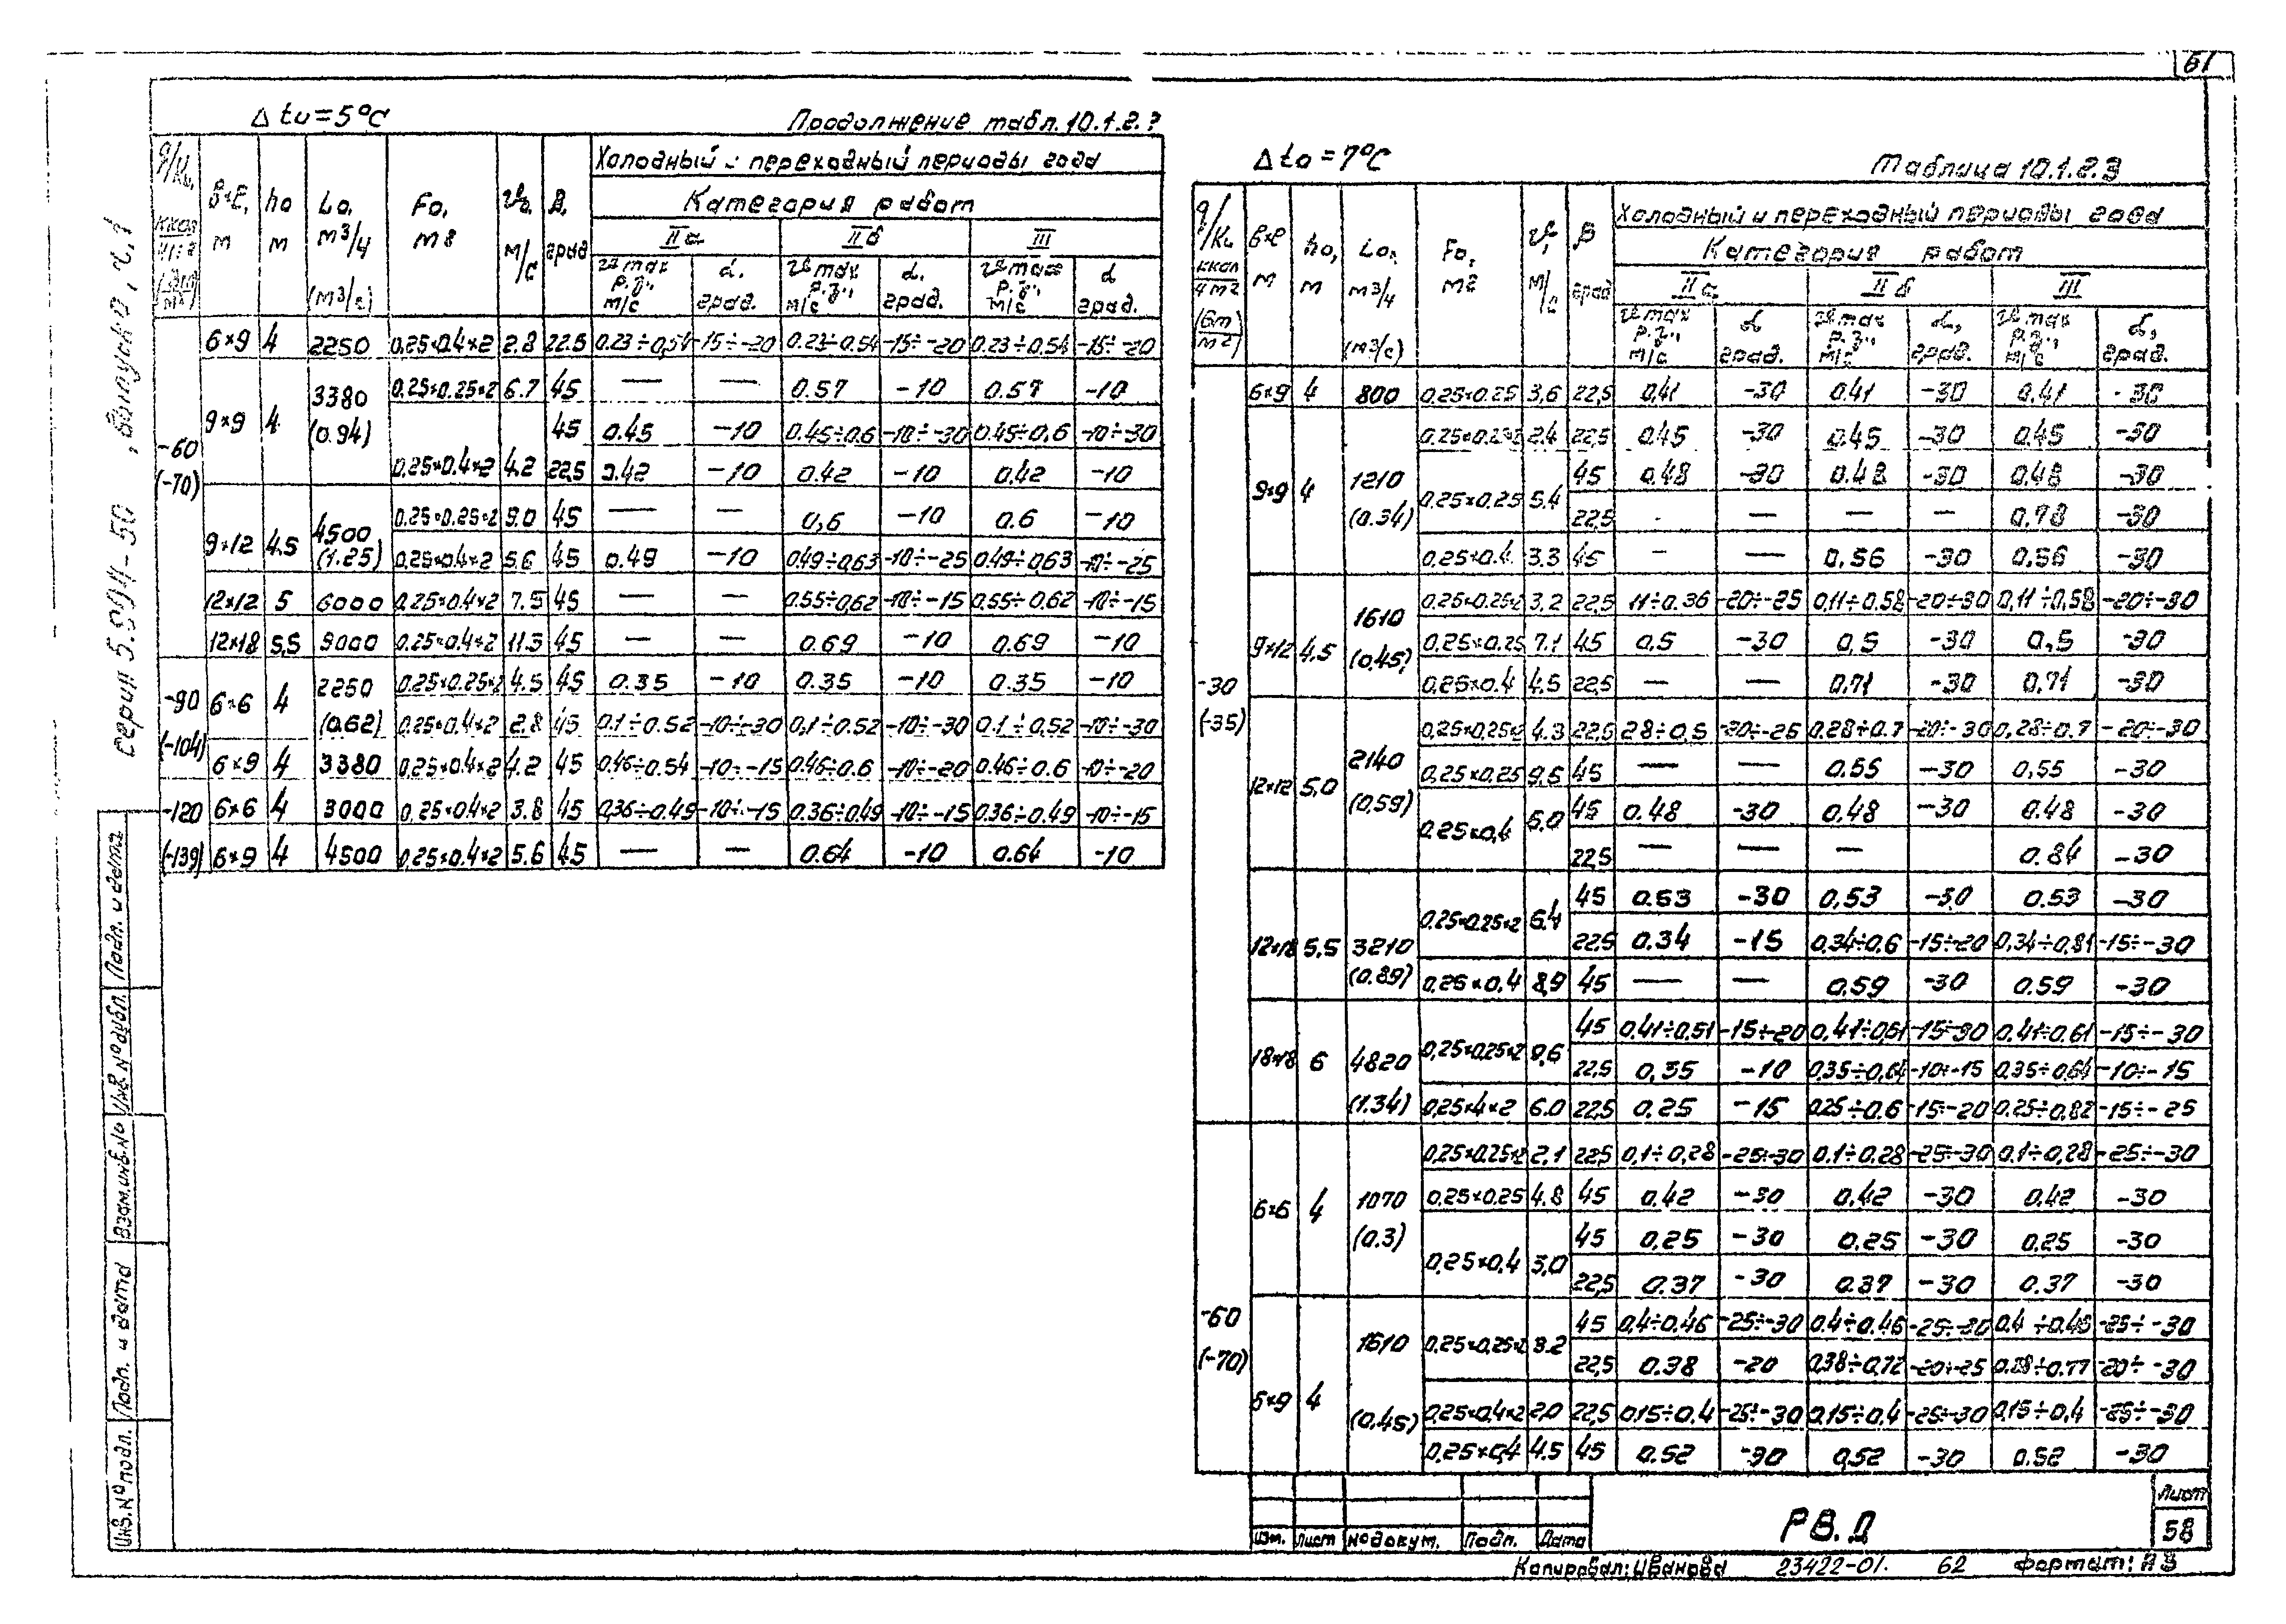 61
Δ to = 5°С
Продолжение табл. 10.1.2.
q/Fц, ккал/ч м2 (Вт/м2) | B×L, м | ho м | Lo, м3/ч (м3/с) | Fo, м2 | V0, м/с | β, град | Холодный и переходный периоды года
Категория работ
IIа | IIб | III
V max р.з., м/с | α, град. | V max р.з., м/с | α, град. | V max р.з., м/с | α град.
6×9 4 2250 0.25×0.4×2 2.8 22.5 0.23÷0,54 -15÷-20 0.23÷0.54 -15÷-20 0.23÷0,54 -15÷-20
-60 (-70) 9×9 4 3380 (0.94) 0.25×0.25×2 6.7 45 — — 0.57 -10 0.57 -10
45 0.45 -10 0.45÷0.6 -10÷-30 0.45÷0,6 -10÷-30
0.25×0.4×2 4.2 22.5 0.42 -10 0.42 -10 0.42 -10
9×12 4.5 4500 (1.25) 0.25×0.25×2 9.0 45 — — 0,6 -10 0.6 -10
0.25×0.4×2 5.6 45 0.49 -10 0.49÷0,63 -10÷-25 0.49÷0,63 -10÷-25
12×12 5 6000 0.25×0.4×2 7.5 45 — — 0.55÷0,62 -10÷-15 0,55÷0.62 -10÷-15
12×18 5,5 9000 0.25×0.4×2 11.3 45 — — 0.69 -10 0.69 -10
-90 (-104) 6×6 4 2250 (0.62) 0.25×0.25×2 4.5 45 0.35 -10 0.35 -10 0.35 -10
0.25×0.4×2 2.8 45 0.1÷0.52 -10÷-30 0,1÷0.52 -10÷-30 0.1÷0,52 -10÷-30
6×9 4 3380 0.25×0.4×2 4.2 45 0.46÷0.54 -10÷-15 0.46÷0.6 -10÷-20 0.46÷0.6 -10÷-20
-120 (-139) 6×6 4 3000 0.25×0.4×2 3.8 45 0,36÷0.49 -10÷-15 0.36÷0.49 -10÷-15 0.36÷0.49 -10÷-15
6×9 4 4500 0,25×0.4×2 5.6 45 — — 0.64 -10 0.64 -10
Δ to = 7°С
Таблица 10.1.2.3
q/Fц ккал/ч м2 (Вт/м2) | B×L м | ho, м | Lo, м3/ч (м3/с) | Fo, м2 | V, м/с | β град | Холодный и переходный периоды года
Категория работ
IIа | IIб | III
V max р.з., м/с | α град. | V max р.з., м/с | α, град. | V max р.з., м/с | α, град.
-30 (-35) 6×9 4 800 0.25×0.25 3,6 22,5 0,41 -30 0.41 -30 0.41 -30
9×9 4 1210 (0.34) 0,25×0.25×2 2.4 22,5 0.45 -30 0.45 -30 0.45 -30
0.25×0.25 5.4 45 0.48 -30 0.48 -30 0.48 -30
22,5 - — — — 0,78 -30
0,25×0.4 3.3 45 — — 0,56 -30 0,56 -30
9×12 4.5 1610 (0,45) 0,25×0.25×2 3,2 22,5 11÷0.36 -20÷-25 0,11÷0.58 -20÷-30 0,11÷0,58 -20÷-30
0,25×0.25 7.1 45 0,5 -30 0,5 -30 0,5 -30
0.25×0.4 4.5 22,5 — — 0,71 -30 0,71 -30
12×12 5,0 2140 (0,59) 0,25×0,25×2 4.3 22,5 28÷0,5 -20÷-25 0,28÷0.7 -20÷-30 0,28÷0,7 -20÷-30
0,25×0,25 9,5 45 — — 0.55 -30 0,55 -30
0.25×0,4 6,0 45 0.48 -30 0,48 -30 0.48 -30
22,5 — — — 0.84 -30
12×18 5,5 3210 (0.89) 0.25×0.25×2 6.4 45 0.53 -30 0,53 -30 0.53 -30
22,5 0.34 -15 0,34÷0,6 -15÷-20 0,34÷0,81 -15÷-30
0,25×0,4 8,9 45 — — 0.59 -30 0.59 -30
18×18 6 4820 (1.34) 0,25×0.25×2 9,6 45 0.41÷0,51 -15÷-20 0,41÷0,61 -15÷-30 0.41÷0.61 -15÷-30
22,5 0,35 -10 0,35÷0,64 -10÷-15 0,35÷0,64 -10÷-15
0,25×4×2 6.0 22,5 0.25 -15 0.25÷0.6 -15÷-20 0.25÷0,82 -15÷-25
-60 (-70) 6×6 4 1070 (0.3) 0,25×0.25×2 2,1 22,5 0,1÷0,28 -25÷-30 0.1÷0.28 -25÷-30 0.1÷0,28 -25÷-30
0,25×0.25 4.8 45 0.42 -30 0,42 -30 0.42 -30
0,25×0,4 3,0 45 0,25 -30 0.25 -30 0,25 -30
22,5 0.37 -30 0.37 -30 0.37 -30
6×9 4 1610 (0,45) 0,25×0,25×2 3.2 45 0,4÷0.46 -25÷-30 0,4÷0.46 -25÷-30 0,4÷0,46 -25÷-30
22,5 0.38 -20 0,38÷0,72 -20÷-25 0,38÷0.77 -20÷-30
0,25×0,4×2 2,0 22,5 0.15÷0.4 -25÷-30 0,15÷0,4 -25÷-30 0,15÷0,4 -25÷-30
0,25×0,4 4.5 45 0.52 -30 0,52 -30 0.52 -30
серия 5.904-50, выпуск 0, ч. 1
Подп. и дата
Инв. № дубл.
Взам. инв. №
Подп. и дата
Инв. № подл.
Изм. Лист № докум. Подп. Дата
РВ.Д
Лист
58
Копировал: Иванова 23422-01. 62 Формат: А3